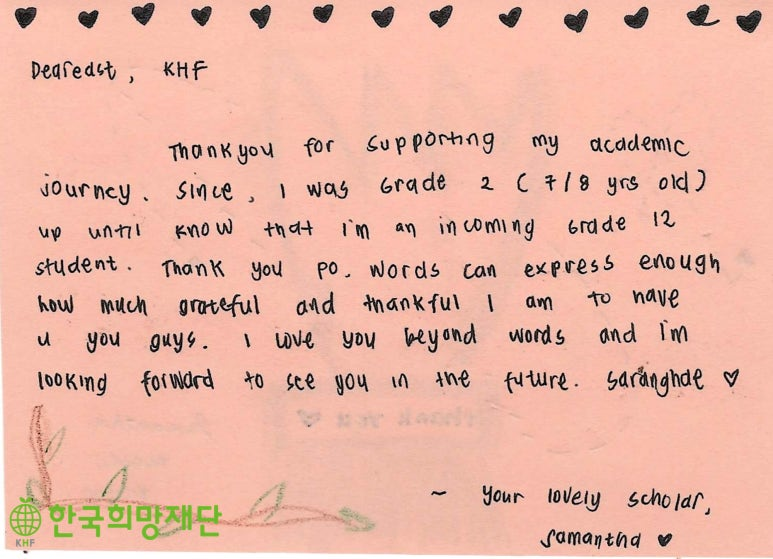 Dearedst, KHF
Thankyou for supporting my academic
journey. Since, I was Grade 2 (7/8 yrs old)
up until know that i'm an incoming Grade 12
student. Thank you po. Words can express enough
how much grateful and thankful I am to have
u you guys. I love you beyond words and i'm
looking forward to see you in the future. Saranghae ♡
~ your lovely scholar,
Samantha ♥
thank you ♡
KHF 한국희망재단